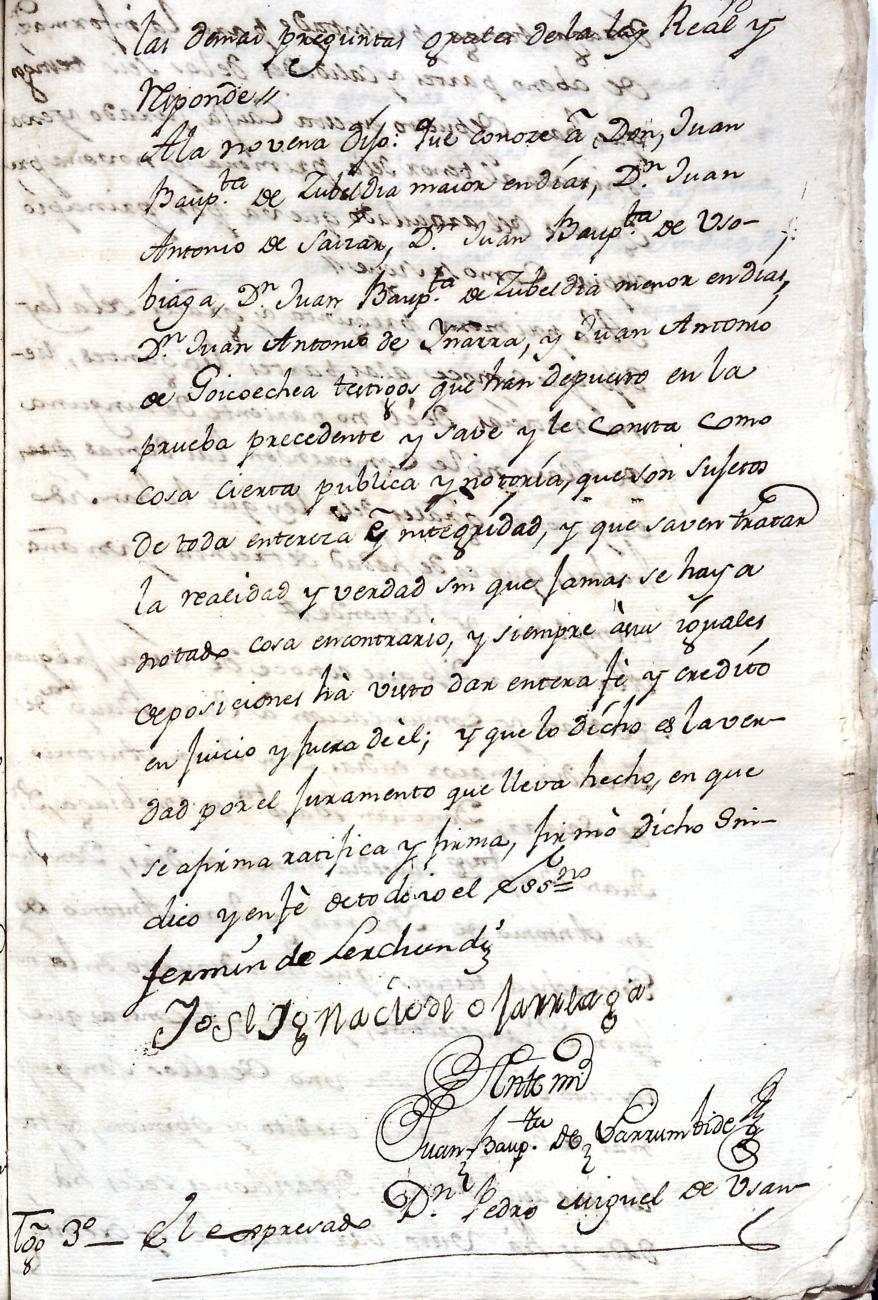 las demas preguntas grales de la ley Real y
responde //.
A la novena dijo: Que conoze â Don, Juan
Baup.ta de Zubeldia maior en días, D.n Juan
Antonio de Saizar, D.n Juan Baup.ta de Uso-
biaga, D.n Juan Baup.ta de Zubeldia menor en días,
D.n Juan Antonio de Ynarra, y Juan Antonio
de Goicoechea testigos que han depuesto en la
prueba precedente y save y le consta como
cosa cierta publica y notoría, que son sujetos
de toda entereza è integridad, y que saven tratar
la realidad y verdad sin que jamas se haya
notado cosa encontrario, y siempre à sus iguales
deposiciones hà visto dar entera fè y credíto
en juicio y fuera de èl; y que lo dícho es la ver-
dad por el juramento que lleva hecho, en que
se afirma ratifica y firma, firmò dicho Sin-
dico y en fè de todo io el Ess.no
Fermin de Lerchundi
Josef Ygnacio de Olarreaga
Ante mi
Juan Baup.ta de Larrumbide
Tgo 3.º El expresado D.n Pedro Miguel de Usan-